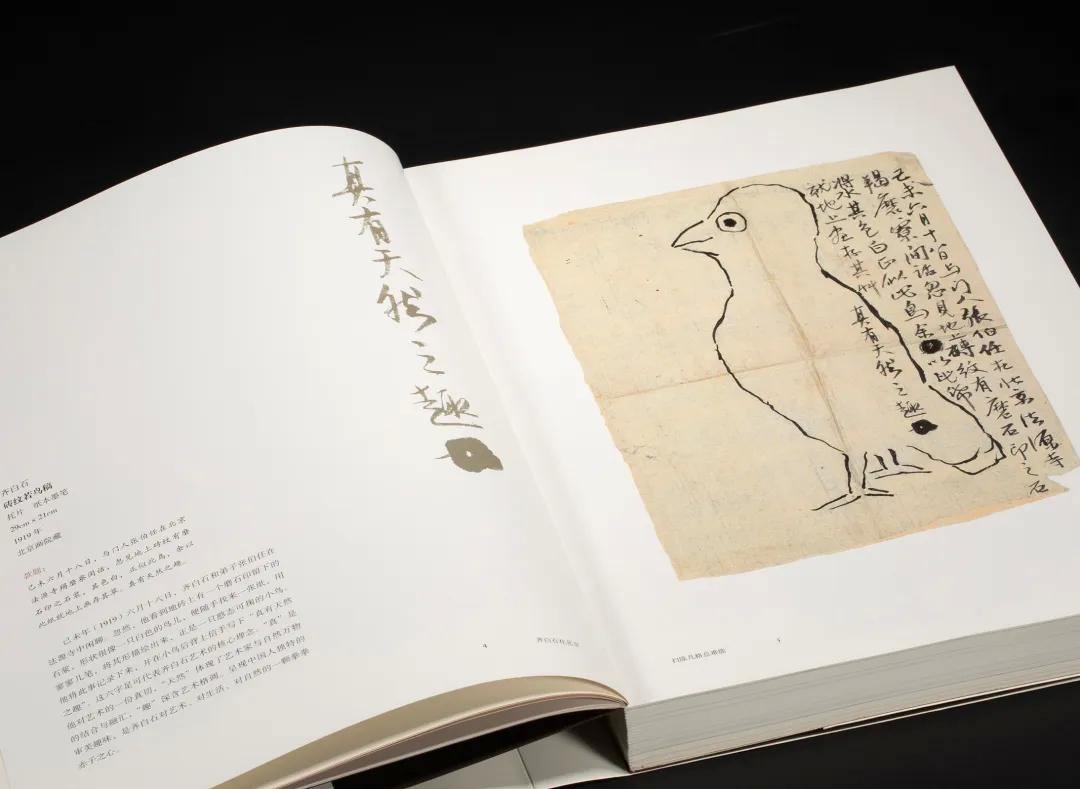 真有天然之趣
齐白石
砖纹若鸟稿
托片 纸本墨笔
29cm×21cm
1919年
北京画院藏
款题：
己未六月十八日，与门人张伯任在北京
法源寺羯磨寮闲话，忽见地上砖纹有磨
石印之石浆，其色白，正似此鸟，余以
此纸就地上画存其草。真有天然之趣。
己未年（1919）六月十八日，齐白石和弟子张伯任在
法源寺中闲聊。忽然，他看到地砖上有一个磨石印留下的
石浆，形状很像一只白色的鸟儿，便随手找来一张纸，用
寥寥几笔，将其形描绘出来，正是一只憨态可掬的小鸟。
他将此事记录下来，并在小鸟后背上信手写下“真有天然
之趣”。这六字是可代表齐白石艺术的核心理念。“真”是
他对艺术的一份真切，“天然”体现了艺术家与自然万物
的结合与融汇，“趣”深含艺术格调，呈现中国人独特的
审美趣味，是齐白石对艺术、对生活、对自然的一颗拳拳
赤子之心。
4
齐白石在北京
己未六月十八日与门人張伯任在北京法源寺
羯磨寮闲話忽見地上磚紋有磨石印之石
漿其色白正似此鸟余以此紙
就地上画存其艸
真有天然之趣
扫除凡格总难能
5